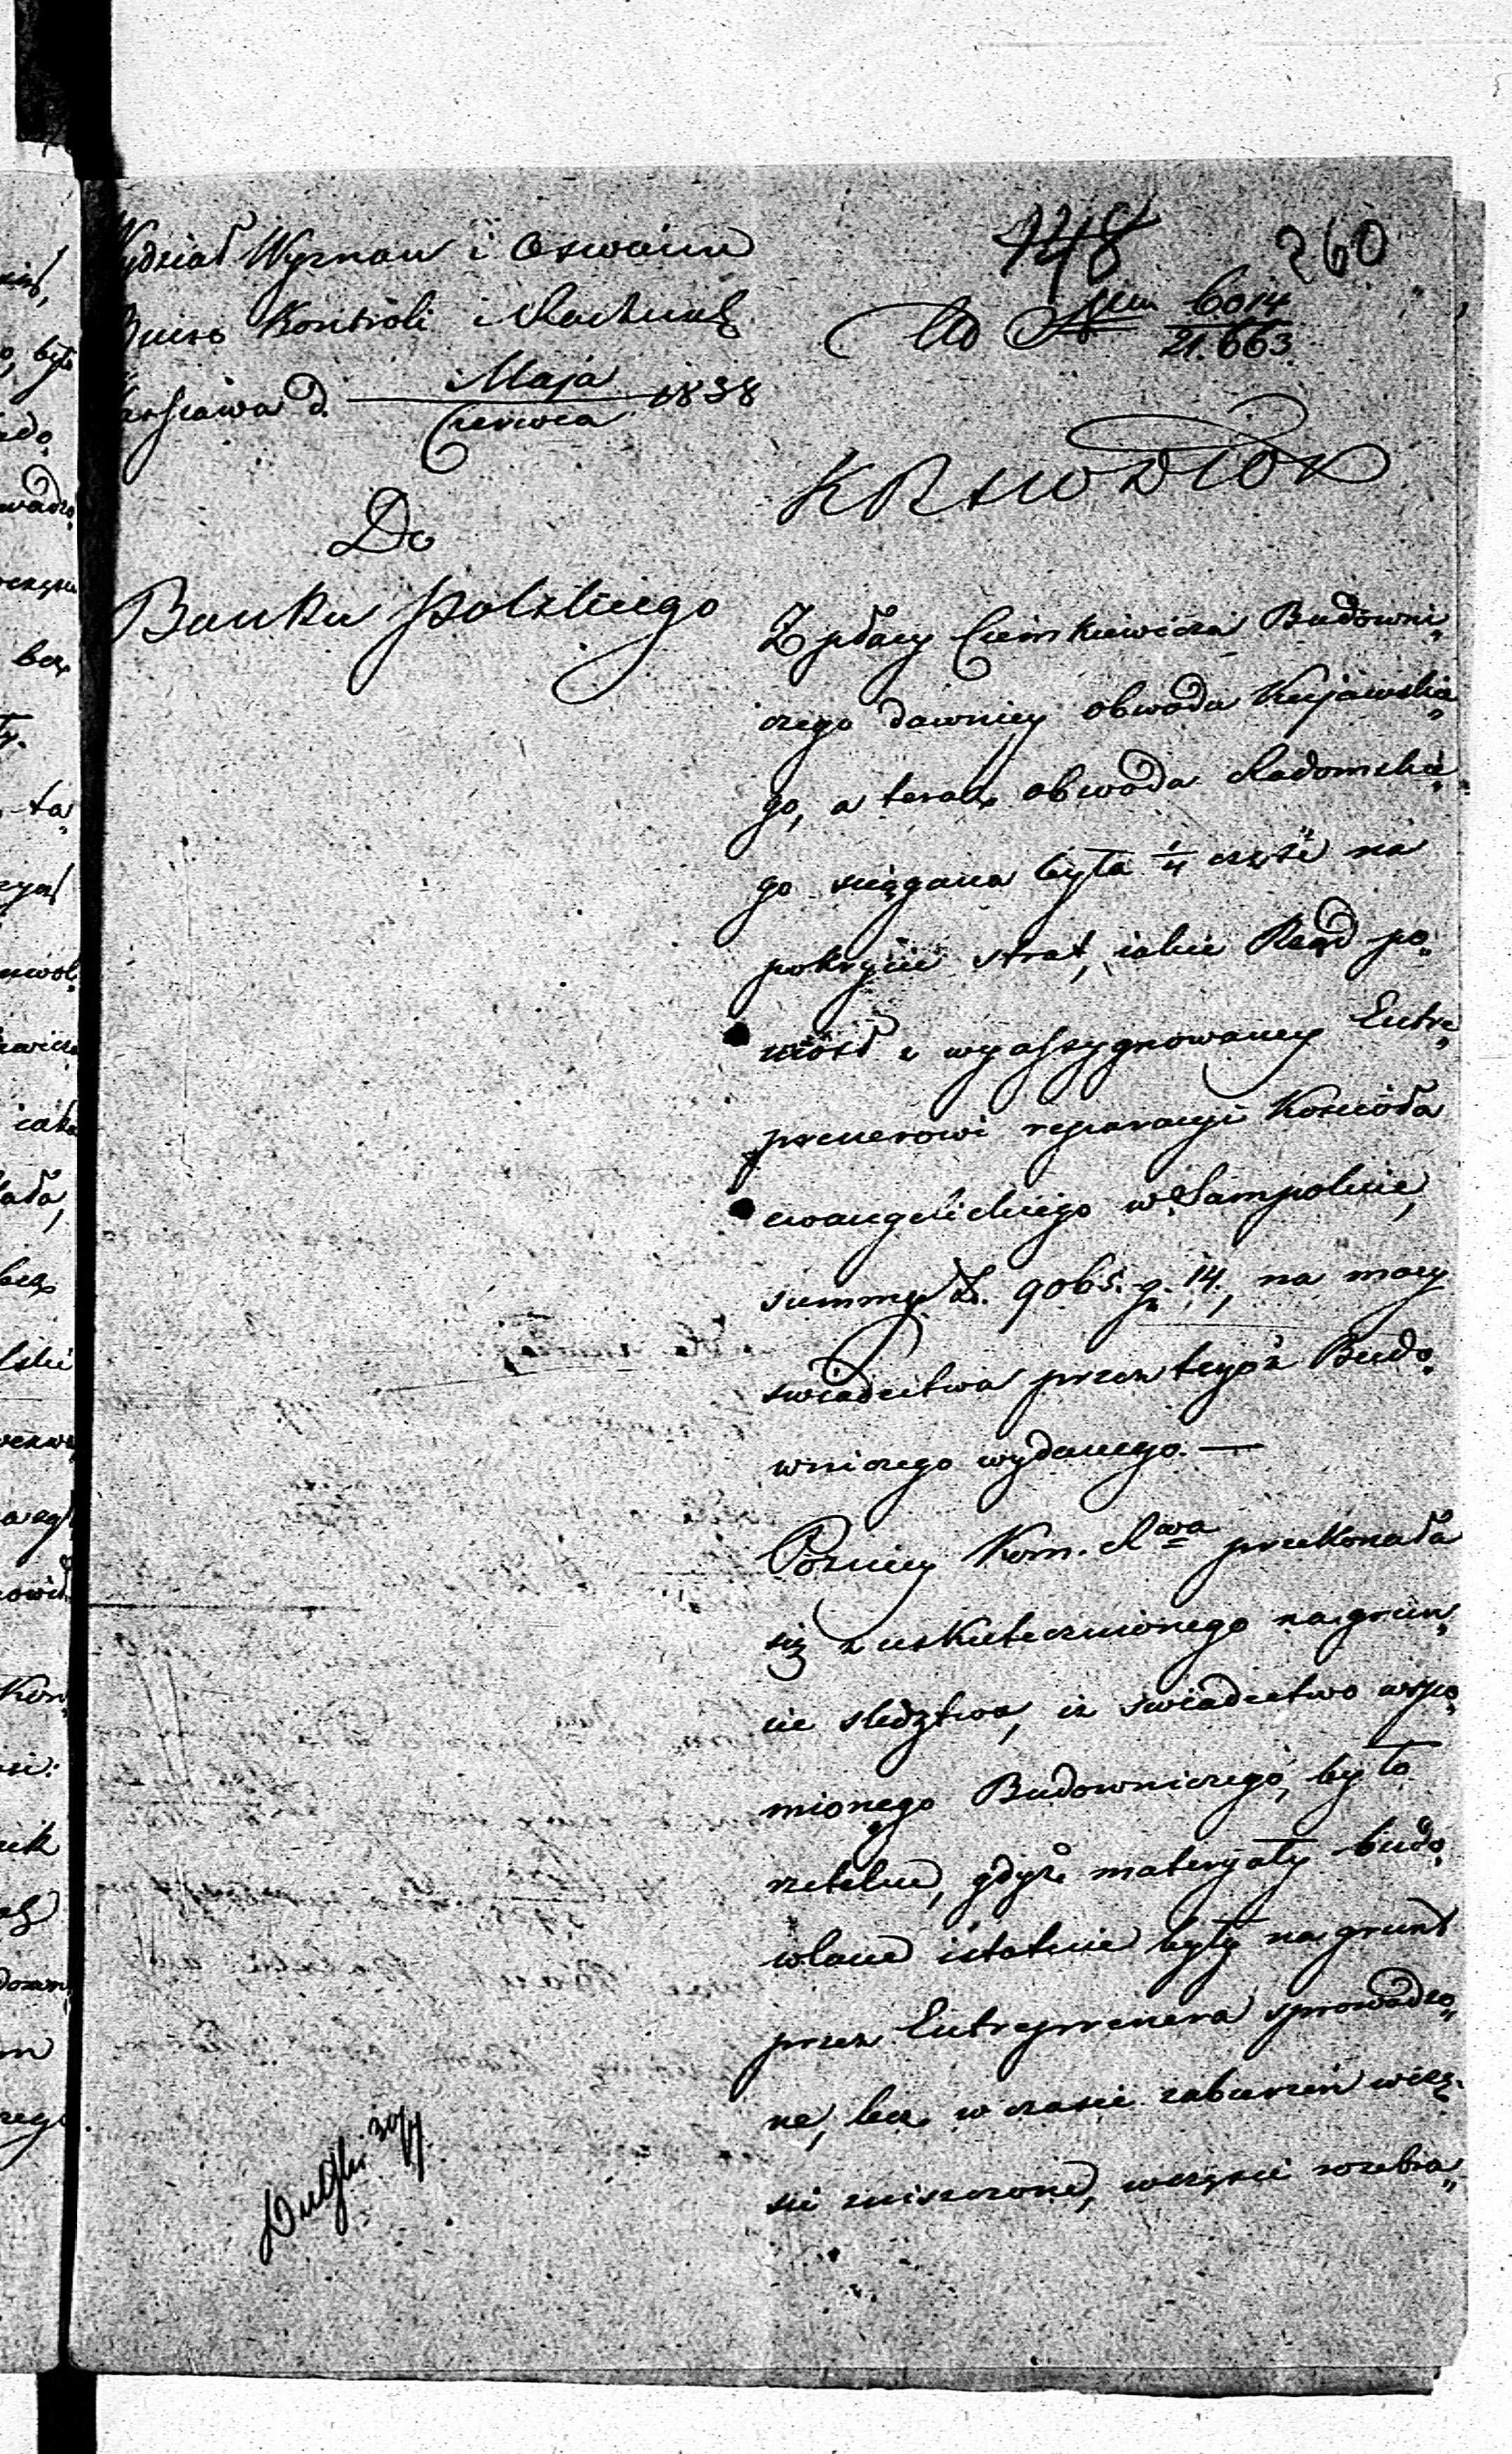 Wydział Wyznań i Oswiece
Biuro Kontroli i Rachunk
Warszawa d. Maja / Czerwca 1838
Do
Banku Polskiego
148 260
Ad Num 6014 / 21.663
KRSWDiOP
Z płacy Cieinkiewicza Budowni„
czego dawniey obwodu Kujawskie„
go, a teraz obwodu Radomskie„
go sciągana była ¼ część na
pokrycie strat, iakie Rząd po„
niósł z wyassygnowaney Entre„
prenerowi reparacyi Kościoła
ewangelickiego w Sampolnie,
summy Z. 9065. g. 14, na mocy
świadectwa przez tegoż Budo„
wniczego wydanego. —
Pózniey Kom. Rwa przekonała
się z uskutecznionego na grun„
cie sledztwa, iz swiadectwo wspo„
mionego Budowniczego, było
rzetelne, gdyż materyały budo„
wlane istotnie były na grunt
przez Entreprenera sprowadzo„
ne, lecz w czasie zaburzeń w częś„
ści zniszczone, w części rozebra„